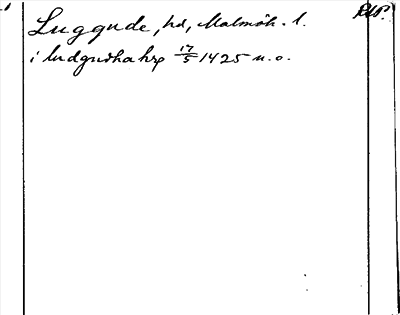 Luggude, hd, Malmöh. l.
i ludgudha hrp 17/5 1425 u. o.